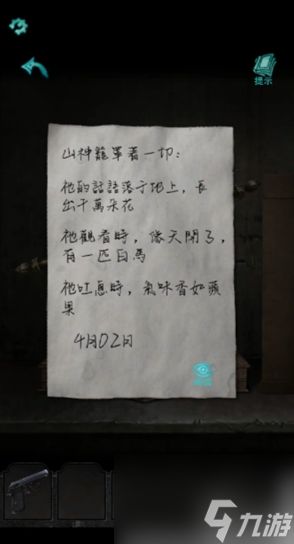 提示
山神籠罩著一切:
祂的話語落于地上，長
出千萬朵花
祂觀看時，像天開了，
有一匹白馬
祂吐息時，氣味香如蘋
果
4月02日
九游